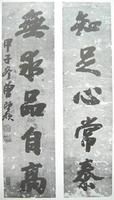 知足心常泰
無求品自高
甲子冬曹錕